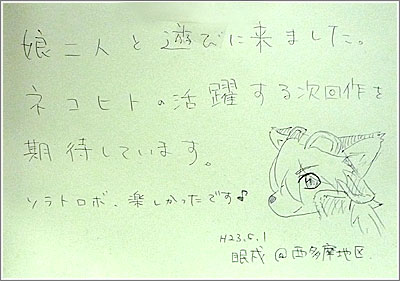 娘二人と遊びに来ました。
ネコヒトの活躍する次回作を
期待しています。
ソラトロボ、楽しかったです♪
H23.5.1
眠戌@西多摩地区